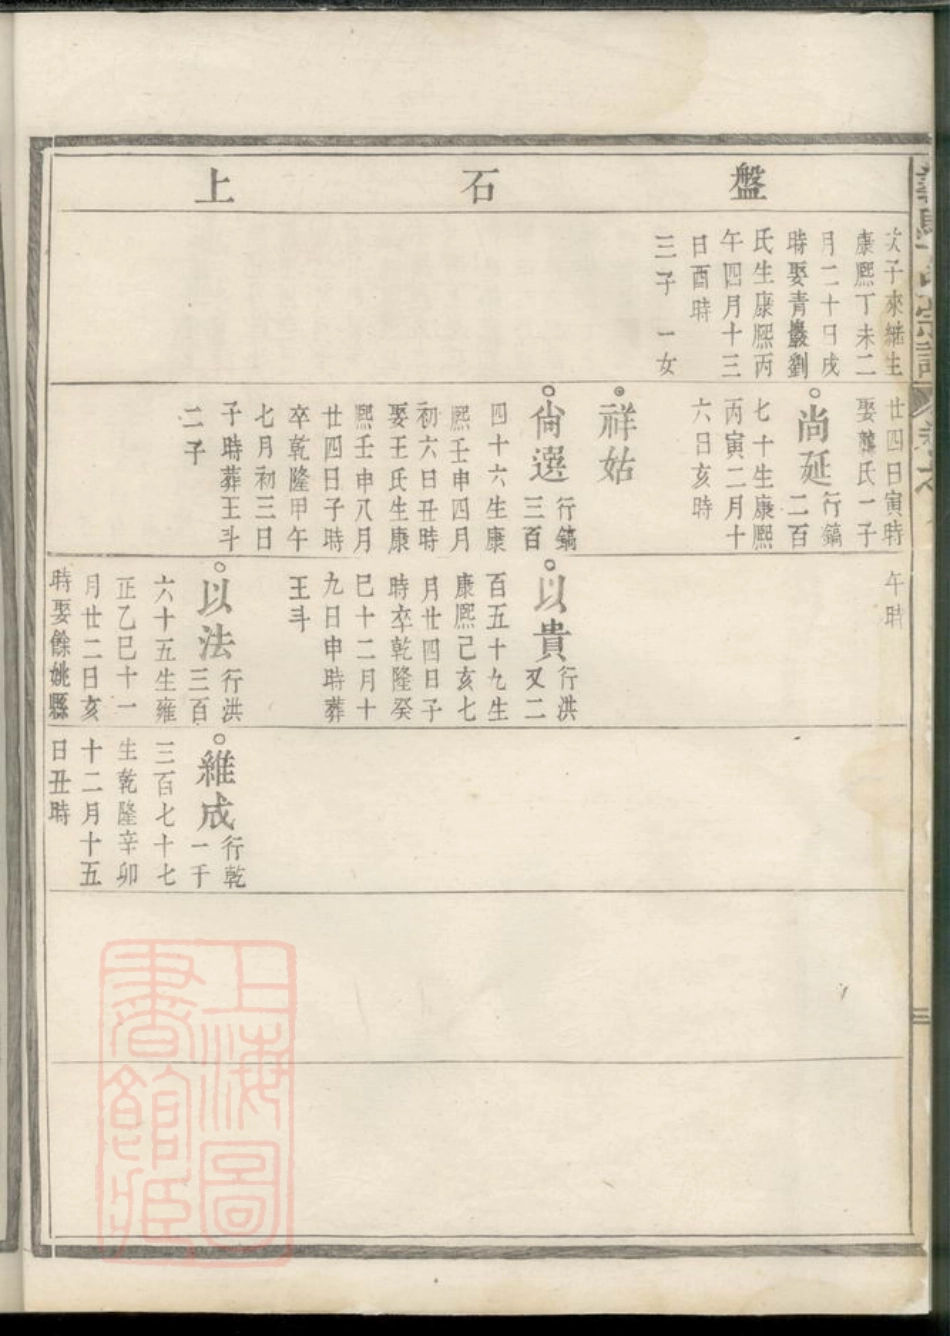 盤石上
次子來繼生
康熙丁未二
月二十日戌
時娶青巖劉
氏生康熙丙
午四月十三
日酉時
三子一女
廿四日寅時
娶龔氏一子
尚延
行鎬
二百
七十生康熙
丙寅二月十
六日亥時
祥姑
尚選
行鎬
三百
四十六生康
熙壬申四月
初六日丑時
娶王氏生康
熙壬申八月
廿四日子時
卒乾隆甲午
七月初三日
子時葬王斗
二子
午時
以貴
行洪
又二
百五十九生
康熙己亥七
月廿四日子
時卒乾隆癸
巳十二月十
九日申時葬
王斗
以法
行洪
三百
六十五生雍
正乙巳十一
月廿二日亥
時娶餘姚縣
維成
行乾
一千
三百七十七
生乾隆辛卯
十二月十五
日丑時
三
上海圖
書館藏